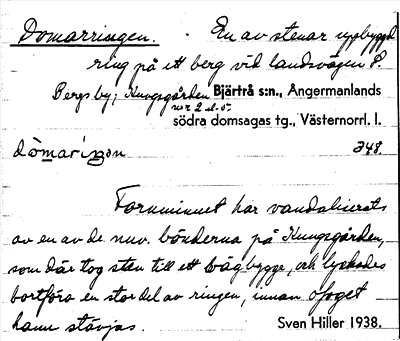 Domarringen. En av stenar uppbyggd
ring på ett berg vid landsvägen P.
Bergs by; Kungsgården Bjärtrå s:n., Ångermanlands
nr 2 d. o.
södra domsagas tg., Västernorrl. l.
dòmariŋɔn 348.
Fornminnet har vandaliserats
av en av de nuv. bönderna på Kungsgården,
som där tog sten till ett vägbygge, och lyckades
bortföra en stor del av ringen, innan ofoget
hann stävjas. Sven Hiller 1938.